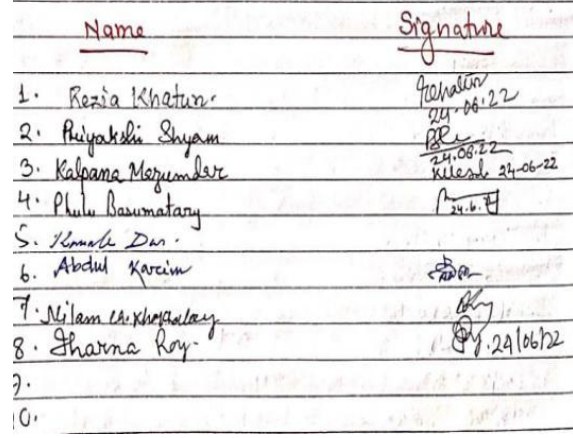 Name Signature
1. Rezia Khatun. Khatun
24.06.22
2. Priyakshi Shyam
24.06.22
3. Kalpana Mazumdar 24-06-22
4. Phulu Basumatary 24.6.
5. Kamale Das.
6. Abdul Kareim
7. Nilam
8. Jharna Roy. 24/06/22
9.
10.